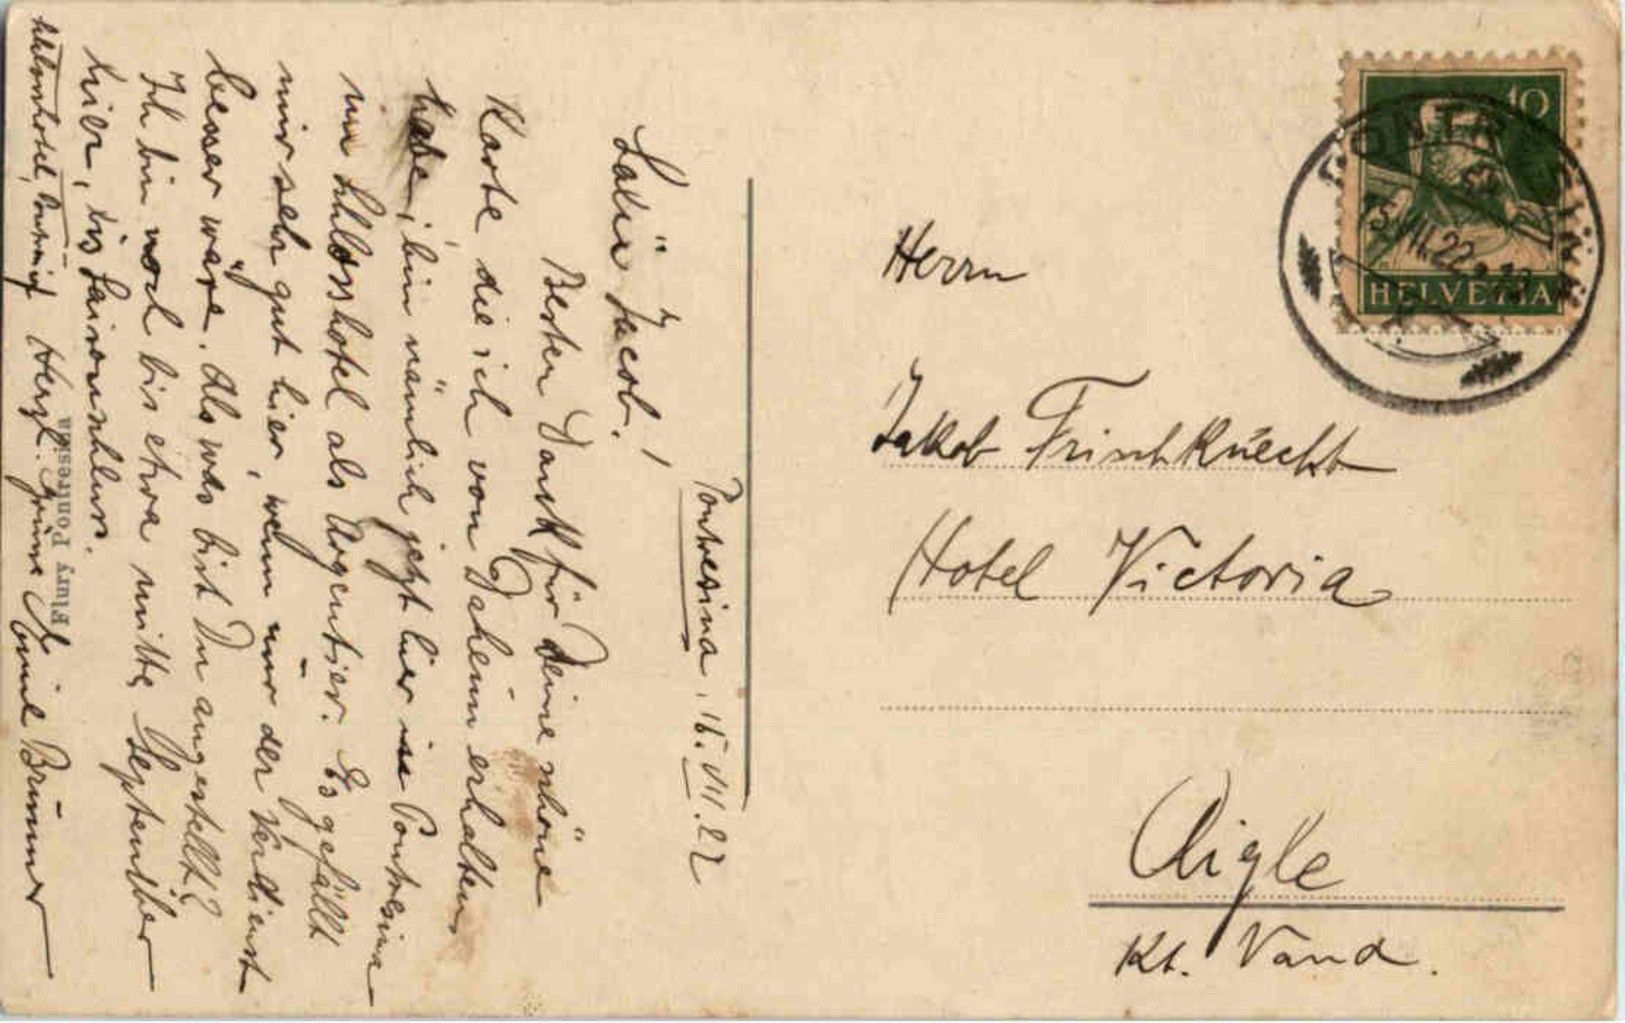 Pontresina, 15. VII. 22
Jacob!
Besten Dank für Deine schöne
Karte die ich von Daheim erhalten
habe, bin nämlich jetzt hier in Pontresina
im Schlosshotel als Argentier. Es gefällt
mir sehr gut hier, wenn nur der Verdienst
besser wäre. Als was bist Du angestellt?
Ich bin noch bis etwa mitte September
hier, bis Saisonschluss.
Herzl. Grüsse Emil Brunner
Schlosshotel,
Flury Pontresina
Herrn
Jakob Frischknecht
Hotel Victoria
Aigle
Kt. Vaud.
10
HELVETIA
PONTRESINA
15.VII.22